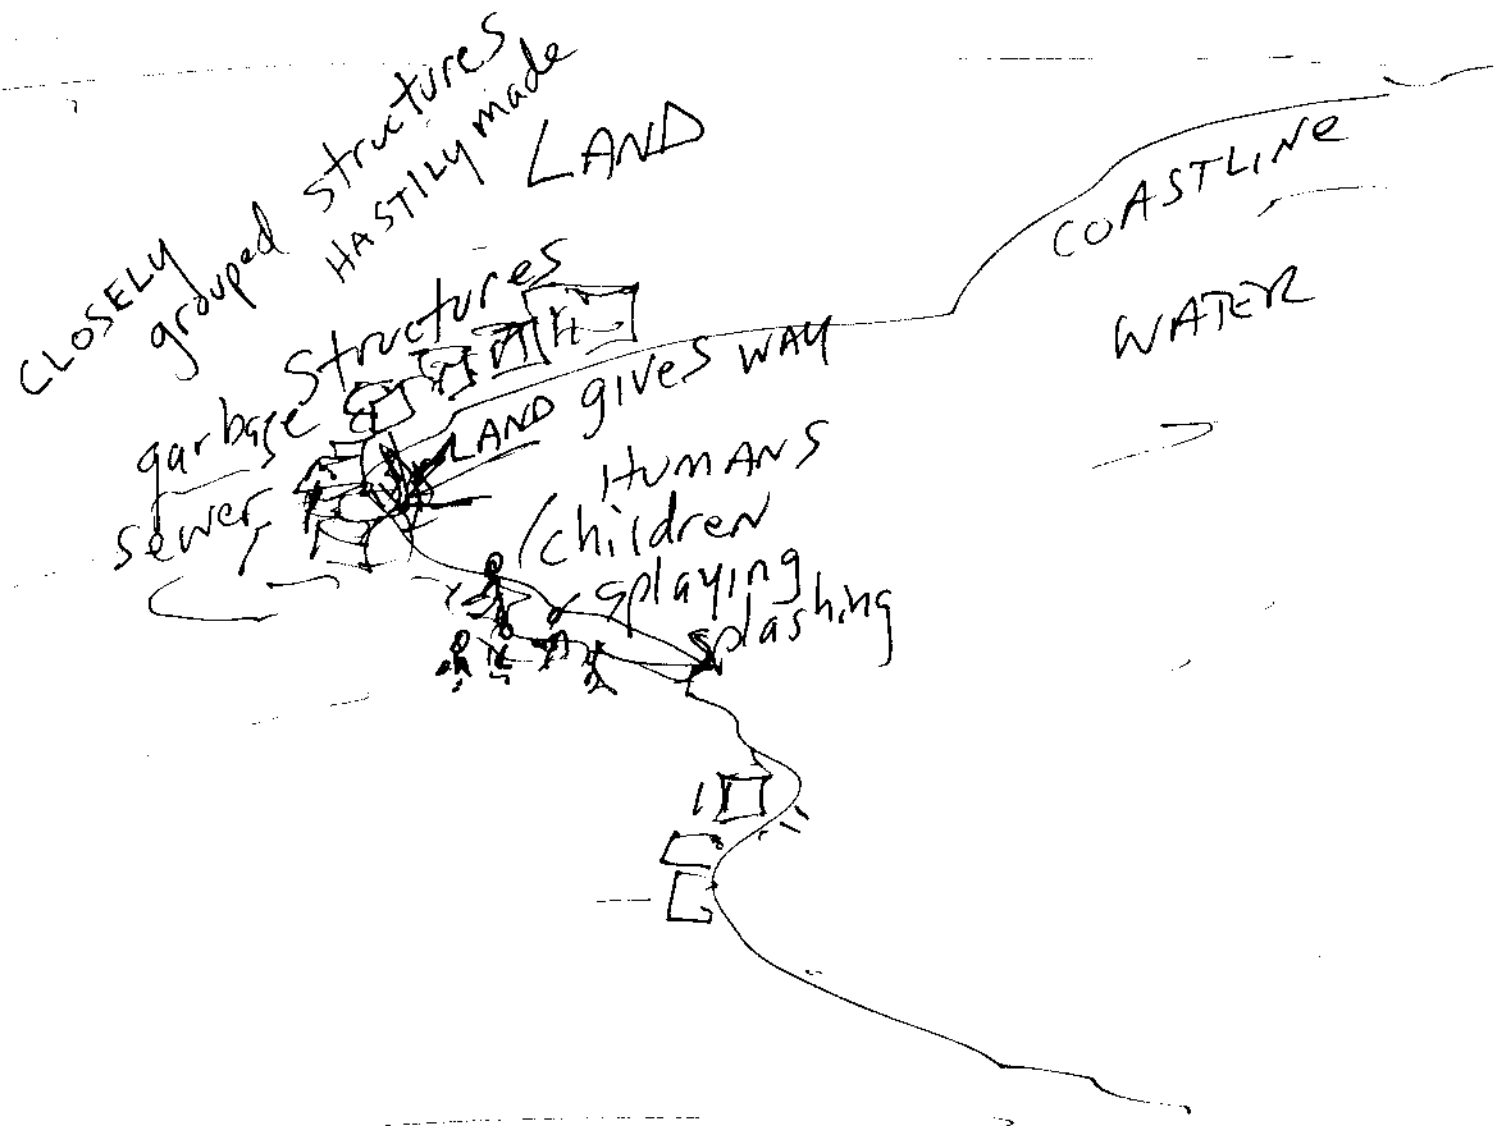 CLOSELY
grouped structures
HASTILY made
LAND
COASTLINE
WATER
structures
garbage
sewer
LAND gives WAY
HUMANS
children
splaying
splashing